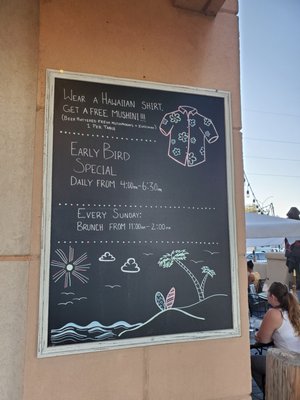 WEAR A HAWAIIAN SHIRT,
GET A FREE MUSHINI!!!
(BEER BATTERED FRESH MUSHROOMS + ZUCCHINI)
1 PER TABLE
EARLY BIRD
SPECIAL
DAILY FROM 4:00PM-6:30PM
EVERY SUNDAY:
BRUNCH FROM 11:00AM-2:00PM